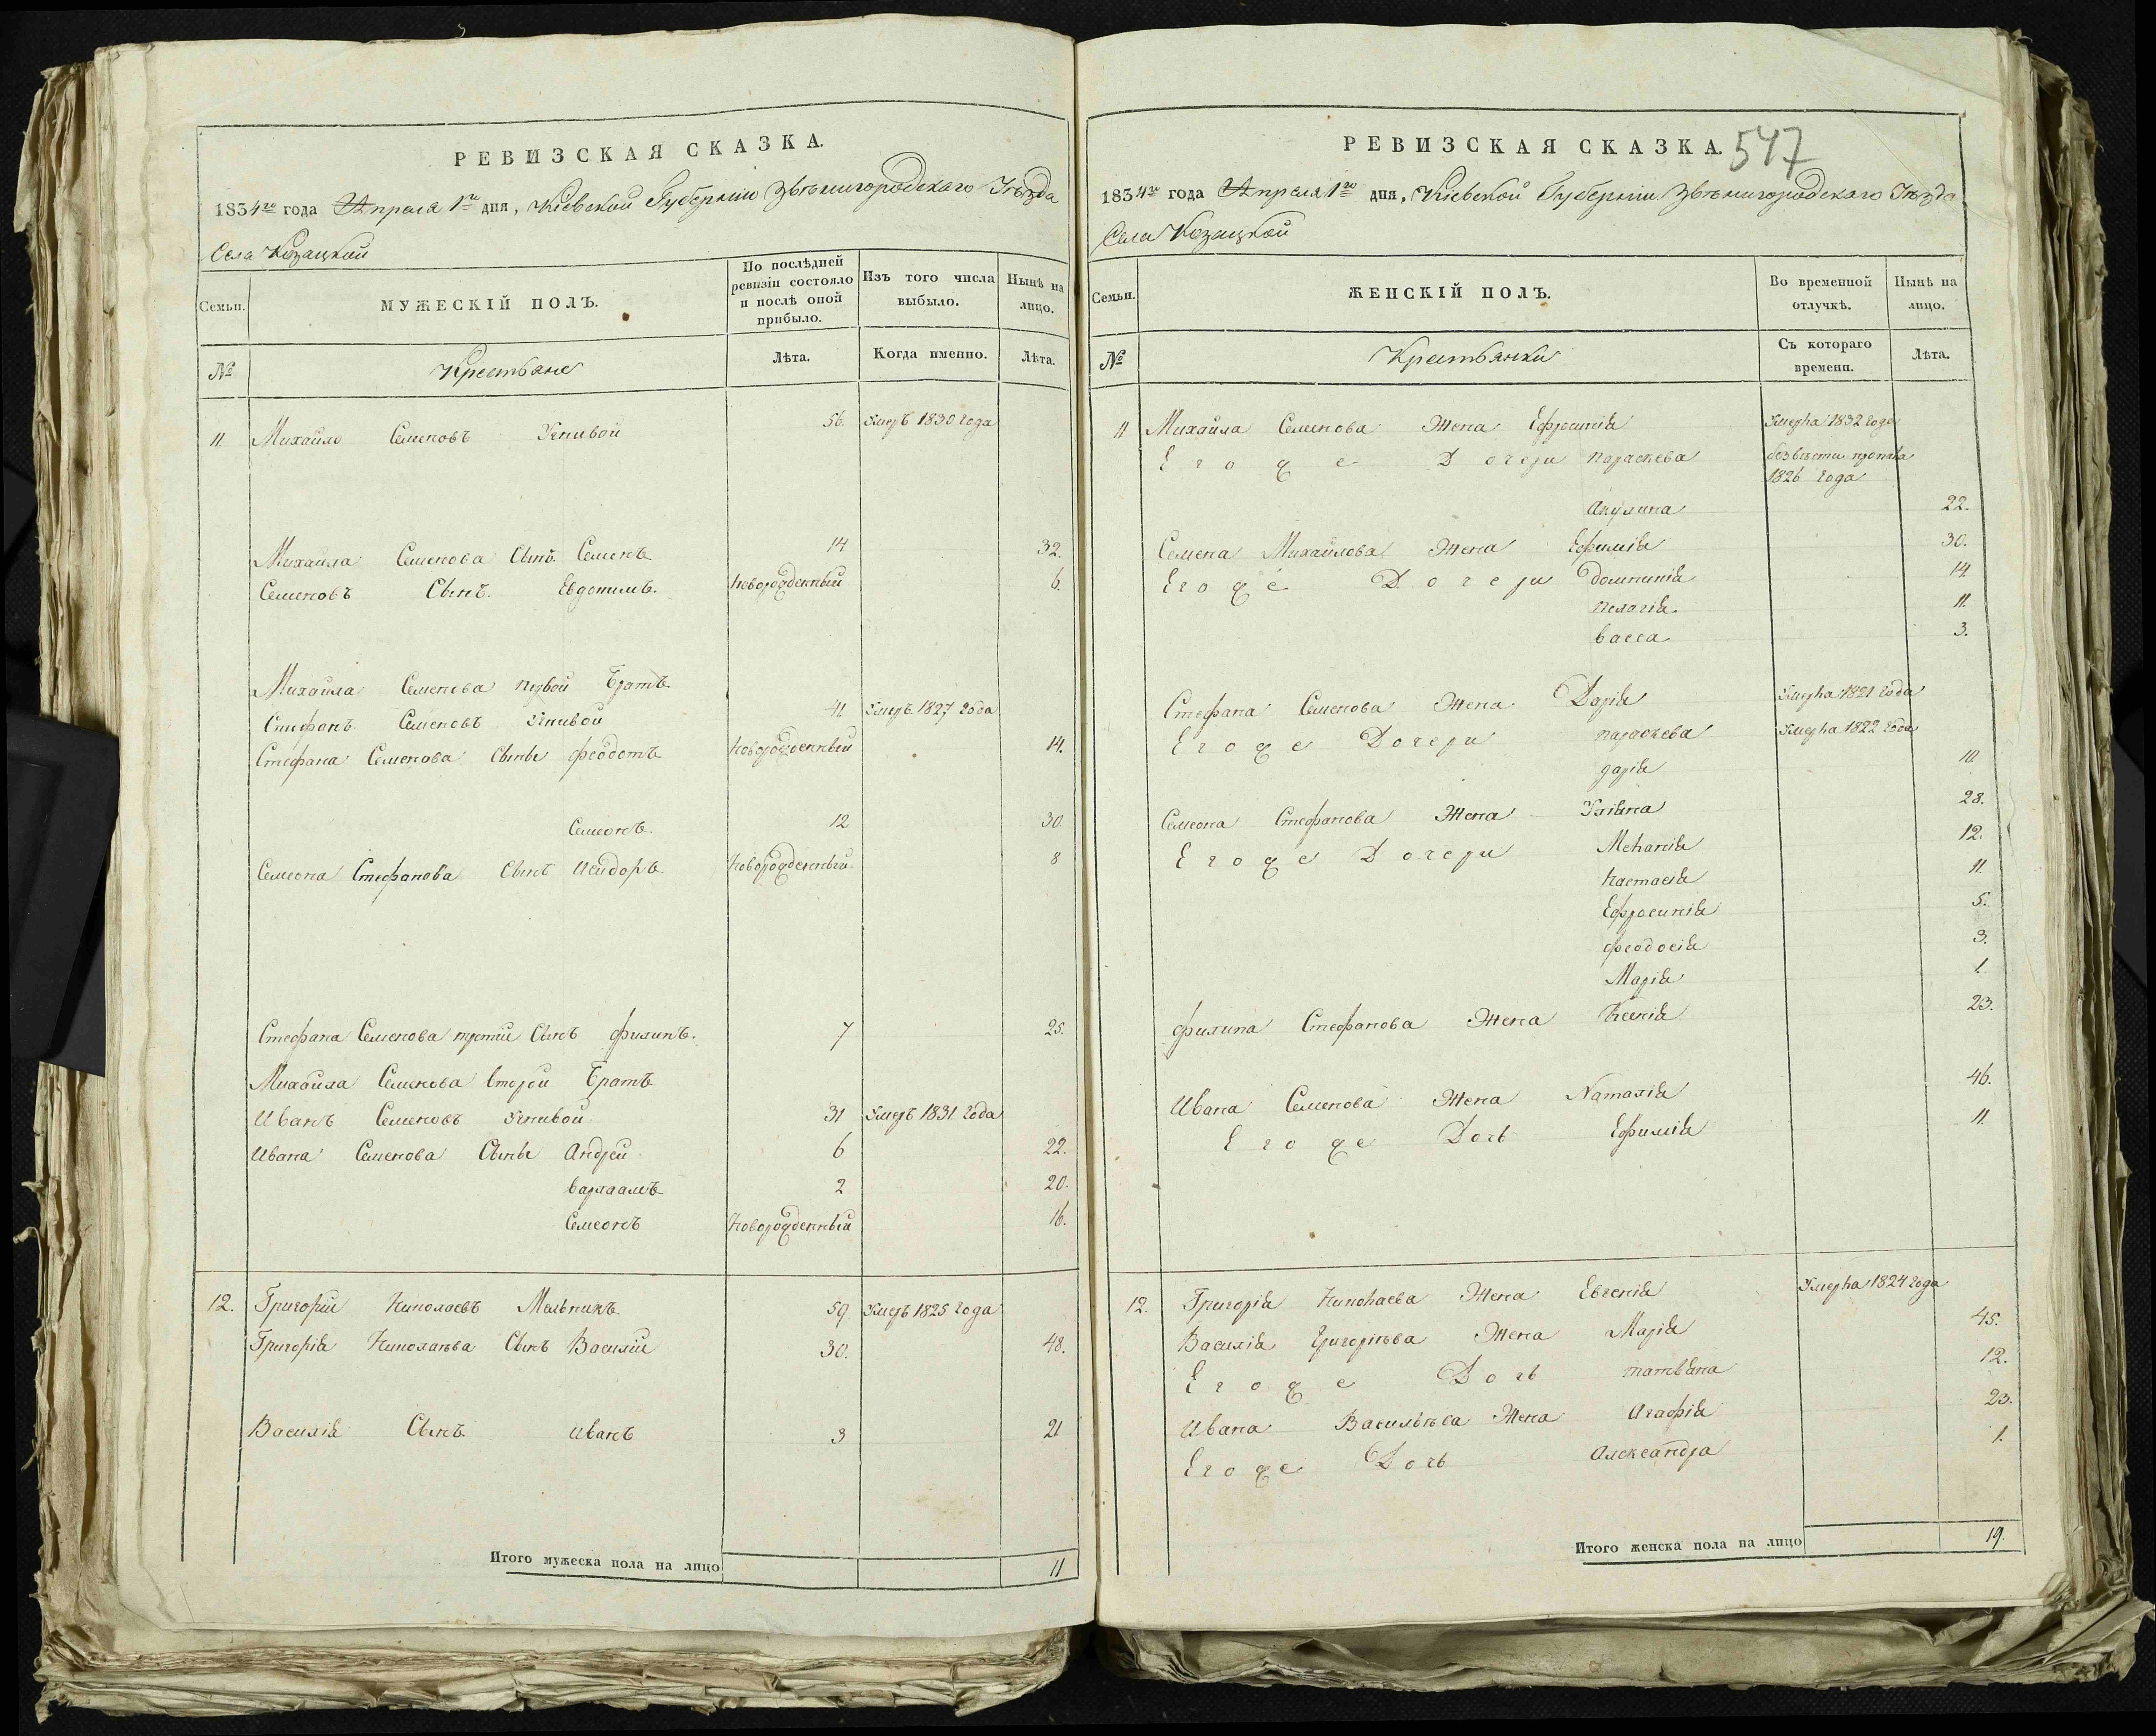 РЕВИЗСКАЯ СКАЗКА.
1834го года Апреля 1го дня, Кіевской Губерніи Звѣнигородскаго Уѣзда
Села Козацкой
Семьи.
МУЖЕСКІЙ ПОЛЪ.
По послѣдней ревизіи состояло и послѣ оной прибыло.
Изъ того числа выбыло.
Нынѣ на лицо.
№
Крестьяне
Лѣта.
Когда именно.
Лѣта.
11 Михайло Семеновъ 56. Умеръ 1830 года
Михайла Семенова Сынъ Семенъ 14 32.
Семеновъ Сынъ Евдокимъ Новорожденный 6.
Михайла Семенова первой Братъ
Стефанъ Семеновъ 41 Умеръ 1827 года
Стефана Семенова Сыны Феодотъ Новорожденный 14.
Семеонъ 12 30
Семеона Стефанова Сынъ Исидоръ Новорожденный 8
Стефана Семенова третій Сынъ Филипъ. 7 25.
Михайла Семенова второй Братъ
Иванъ Семеновъ 31 Умеръ 1831 года
Ивана Семенова Сыны Андрей 6 22.
Варлаамъ 2 20.
Семеонъ Новорожденный 16.
12. Григорій Николаевъ Мельникъ 59 Умеръ 1825 года
Григорія Николаева Сынъ Василій 30. 48.
Василія Сынъ Иванъ 3 21
Итого мужеска пола на лицо 11
РЕВИЗСКАЯ СКАЗКА.
547
1834го года Апреля 1го дня, Кіевской Губерніи Звѣнигородскаго Уѣзда
Села Козацкой
Семьи.
ЖЕНСКІЙ ПОЛЪ.
Во временной отлучкѣ.
Нынѣ на лицо.
№
Крестьянки
Съ котораго времени.
Лѣта.
11 Михайла Семенова Жена Ефросинія Умерла 1832 года
Егоже Дочери Параскева безвѣсти пропала
1826 года
Акулина 22.
Семена Михайлова Жена Ефимія 30.
Егоже Дочери Домникія 14
Пелагія 11.
Васса 3.
Стефана Семенова Жена Дарія Умерла 1821 года
Егоже Дочери Параскева Умерла 1822 года
Дарія 10
Семеона Стефанова Жена Уліяна 28.
Егоже Дочери Меланія 12.
Настасія 11.
Ефросинія 5.
Феодосія 3.
Марія 1.
Филипа Стефанова Жена Ксенія 23.
Ивана Семенова Жена Наталія 46.
Егоже Дочь Ефимія 11.
12. Григорія Николаева Жена Евгенія Умерла 1824 года
Василія Григорѣева Жена Марія 45.
Егоже Дочь Татьяна 12.
Ивана Васильѣва Жена Агафія 23.
Егоже Дочь Александра 1.
Итого женска пола на лицо 19.